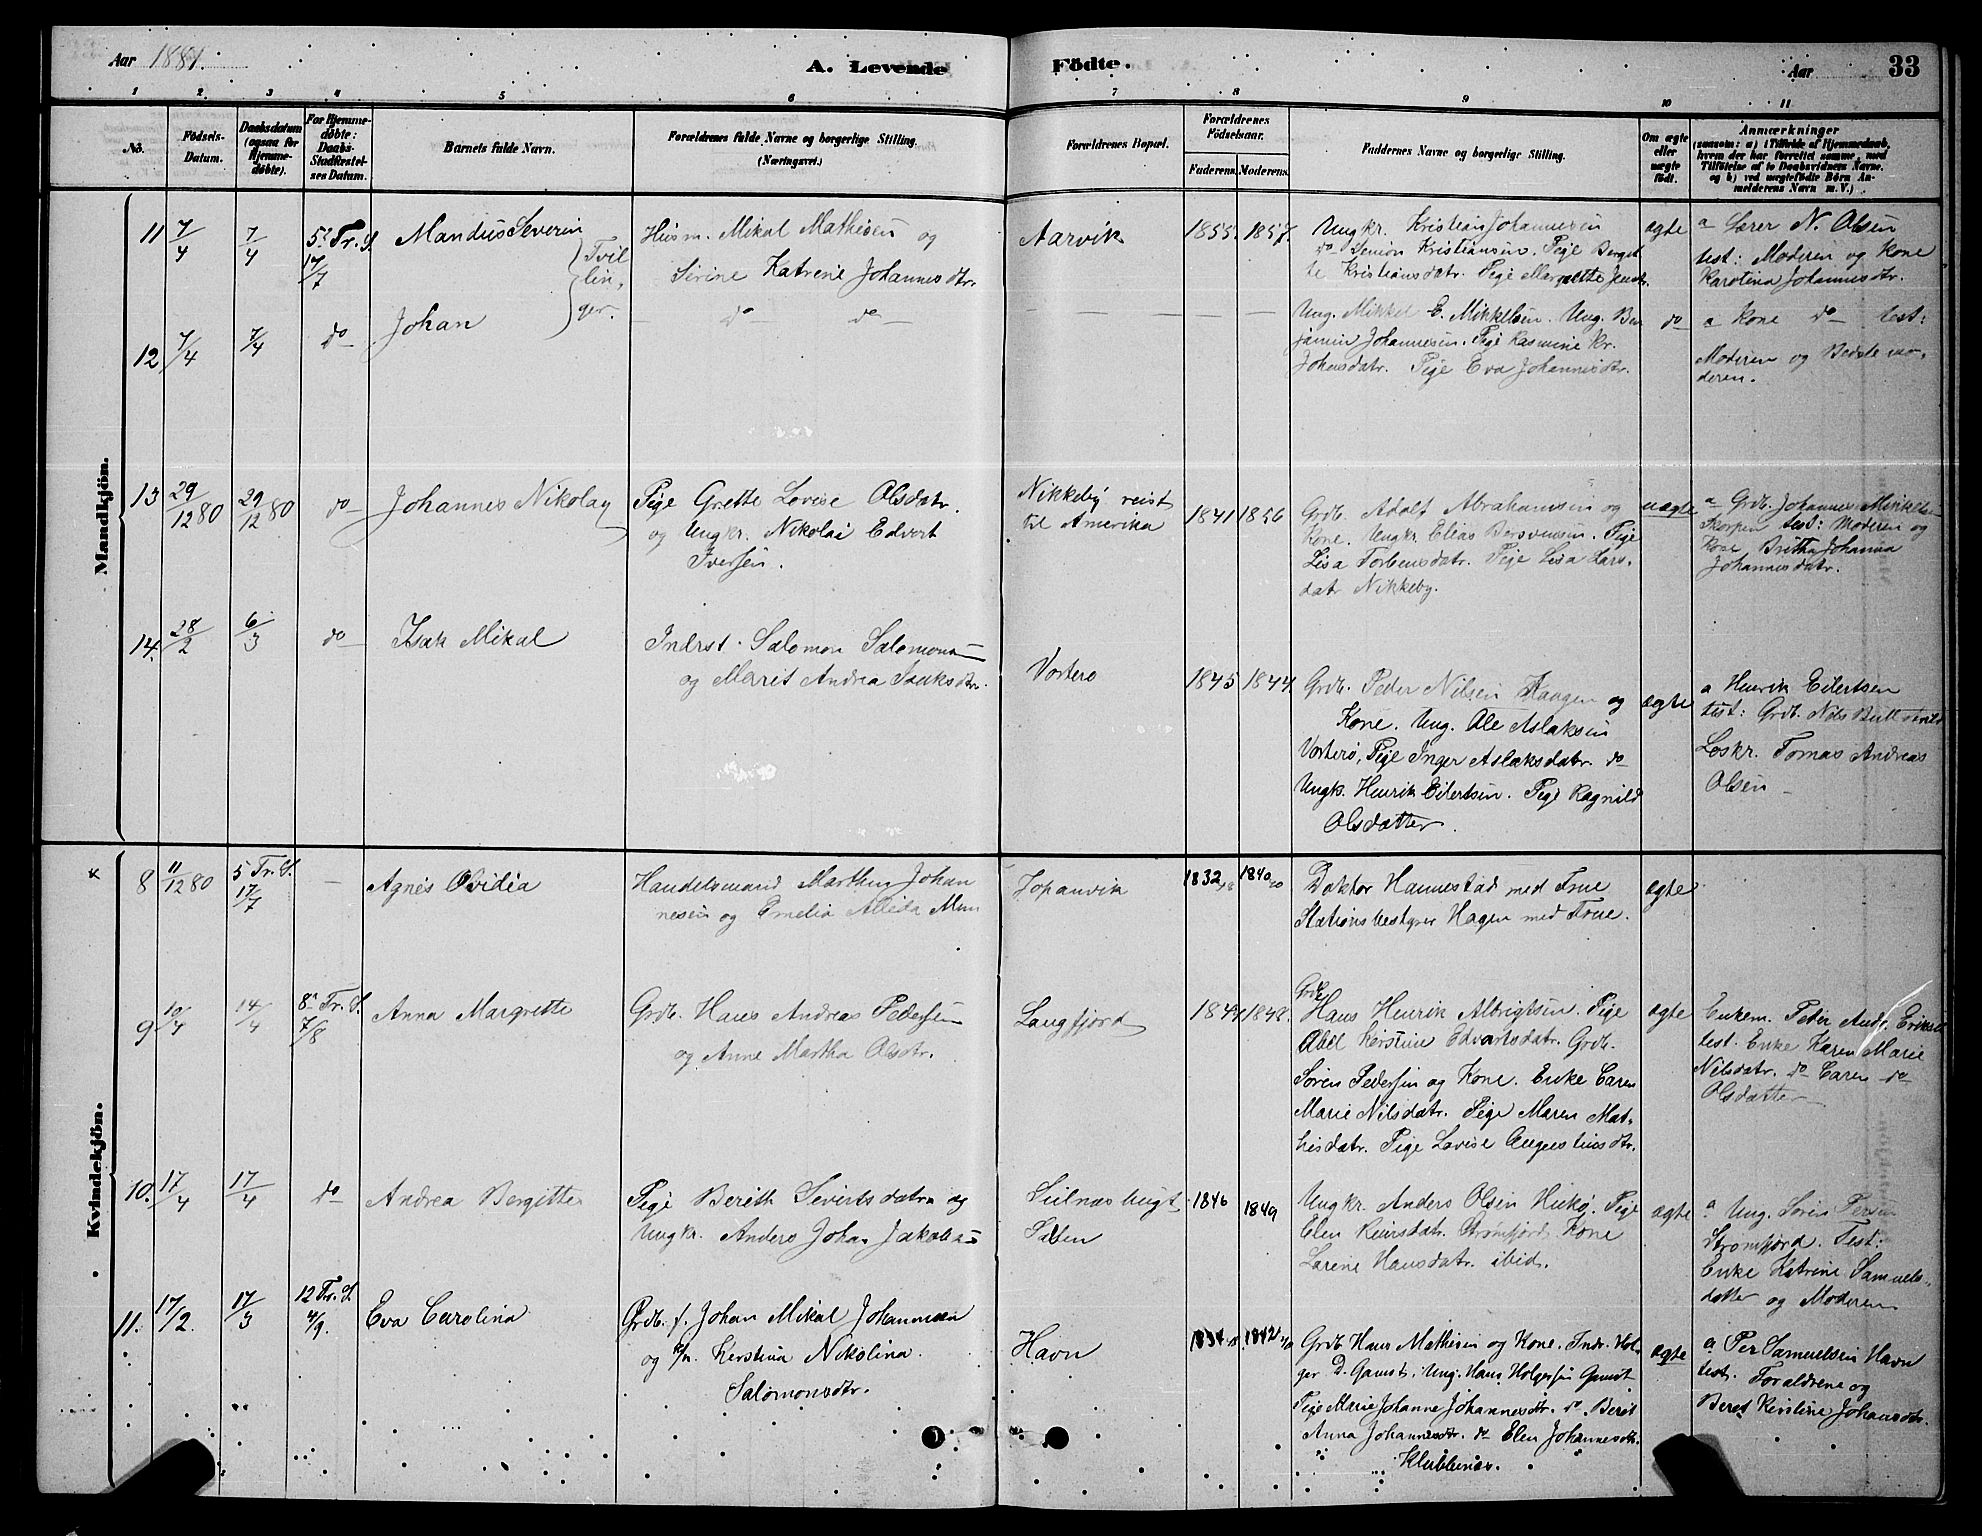 Aar 1881. A. Levende Födte. Aar 33
1 2 3 4 5 6 7 8 9 10 11
No.
Födsels-
Datum.
Daabsdatum
(ogsaa for
Hjemme-
døbte).
For Hjemme-
døbte:
Daabs-
Stadfæstel-
ses Datum.
Barnets fulde Navn.
Forældrenes fulde Navne og borgerlige Stilling.
(Næringsvei.)
Forældrenes Bopæl.
Forældrenes
Födselsaar.
Faderens. Moderens.
Faddernes Navne og borgerlige Stilling.
Om ægte
eller
uægte
födt.
Anmærkninger
(saasom: a) i Tilfælde af Hjemmedaab,
hvem der har forrettet samme, med
Tilföielse af to Daabsvidners Navne,
og b) ved uægtefödte Börn An-
melderens Navn m. V.)
Mandkjön.
11 7/4 7/4 5. Tr. S. 17/7
Mandius Severin
Johan
Tvil
lin,
ger.
Husm. Mikal Mathisen og
Serine Katrine Johannesdtr.
Aarvik
1855. 1857.
Ungkr. Kristian Johannesen
do Simon Kristiansen. Pige Berget
te Kristiansdatr. Pige Mar ette Jensdtr.
ægte
a Lærer N. Olsen
test: Moderen og Kone
Karolina Johannesdtr.
12 7/4 7/4 do
do do
Ung. Mikkel E. Mikkelsen. Ung. Ben
jamin Johannesen. Pige Rasmine Kr.
Johansdatr. Pige Eva Johannesdtr.
do
a Kone do test:
Moderen og Bedstemo,
deren.
13 29/12 80 29/12 80 do
Johannes Nikolay
Pige Grette Lovise Olsdatr.
og Ungkr. Nikolai Edvert
Iversen.
Nikkeby reist
til Amerika
1841 1856
Grdb. Adolf Abrahamsen og
Kone. Ungkr. Elias Bersvensen. Pige
Lisa Torbensdatr. Pige Lisa Lars,
datr Nikkeby.
uægte
a Grdb. Johannes Mikkelsen
Skorpen test: Moderen og
Kone Britha Johanna
Johannesdatr.
14. 28/2 6/3 do
Isak Mikal
Indrst. Salomon Salomonsen
og Marit Andrea Isaksdtr.
Vorterø
1845 1844
Grdb. Peder Nilsen Kaagen og
Kone. Ung. Ole Aslaksen
Vorterø, Pige Inger Aslaksdatr. do
Ungk. Henrik Eilertsen. Pige Ragnild
Olsdatter.
ægte
a Henrik Eilertsen
test: Grdb. Nils
Løskr. Tomas Andreas
Olsen
Kvindekjön.
x 8 11/12 80 5 Tr. S. 17/7 —
Agnes Ovidia
Handelsmand Marthin Johan
nesen og Emelia Alleda
1832 18 1840
Doktor Hannestad med Frue
Stationsbestyrer Hagen med Frue.
ægte
9 10/4 14/4 8. Tr. S. 7/8
Anna Margrette
Grdb. Hans Andreas Pedersen
og Anne Martha Olsdtr.
Langfjord
1844 1848.
Grdb.
Hans Henrik Albrigtsen. Pige
Abel Kerstine Edvartsdatr. Grdb.
Søren Pedersen og Kone. Enke Caren
Marie Nilsdatr. Pige Maren Mat,
hisdatr. Pige Lovise Augustinusdtr.
ægte
Enkem. Peder Andr. Eriksen
test. Enke Karen Marie
Nilsdatr. do Caren do
Olsdatter
10. 17/4 17/4 do
Andrea Bergitte
Pige Berith Sivertsdatr og
Ungkr. Anders Johan Jakobsen
1846 1849
Ungkr. Anders Olsen Hukø. Pige
Elen Reiersdatr. Strømfjord. Kone
Larene Hansdatr. ibid.
ægte
a. Ung. Søren Persen
Strømfjord. Test:
Enke Katrine Samuels,
datter og Moderen
11. 17/2. 17/3 12 Tr. S. 4/9.
Eva Carolina
Grdb. f. Johan Mikal Johannesen
og Kerstina Nikolina
Salomonsdtr.
Havn
1834 18 1842
Grdb Hans Mathisen og Kone. Indr. Hol,
ger D. Gamst. Ung. Hans Holgersen Gamst
Pige Marie Johanne Johannesdtr. do. Berit
Anna Johannesdtr. do Elen Johannesdtr.
Klubbenes.
ægte
a. Per Samuelsen Havn
test. Forældrene og
Beret Kerstine Johansdtr.